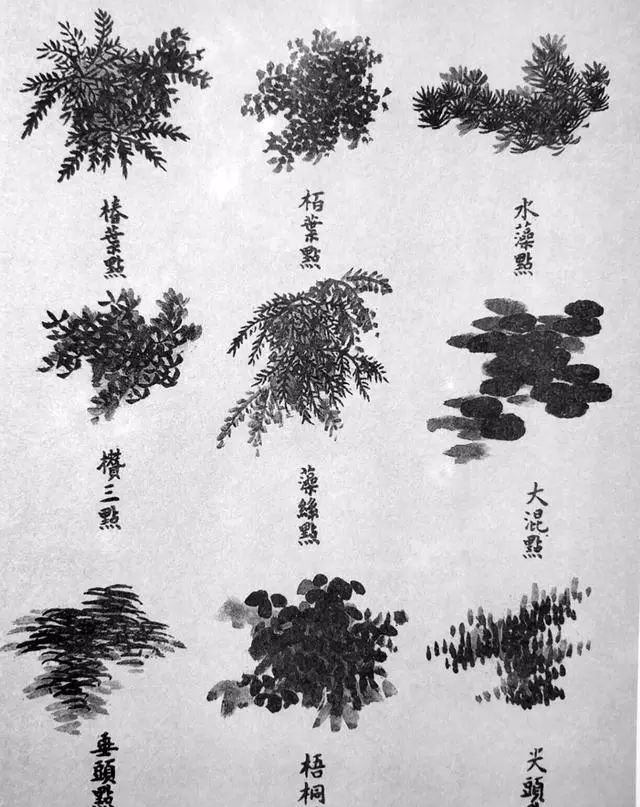 椿葉點
柏葉點
水藻點
攢三點
藻絲點
大混點
垂頭點
梧桐
尖頭